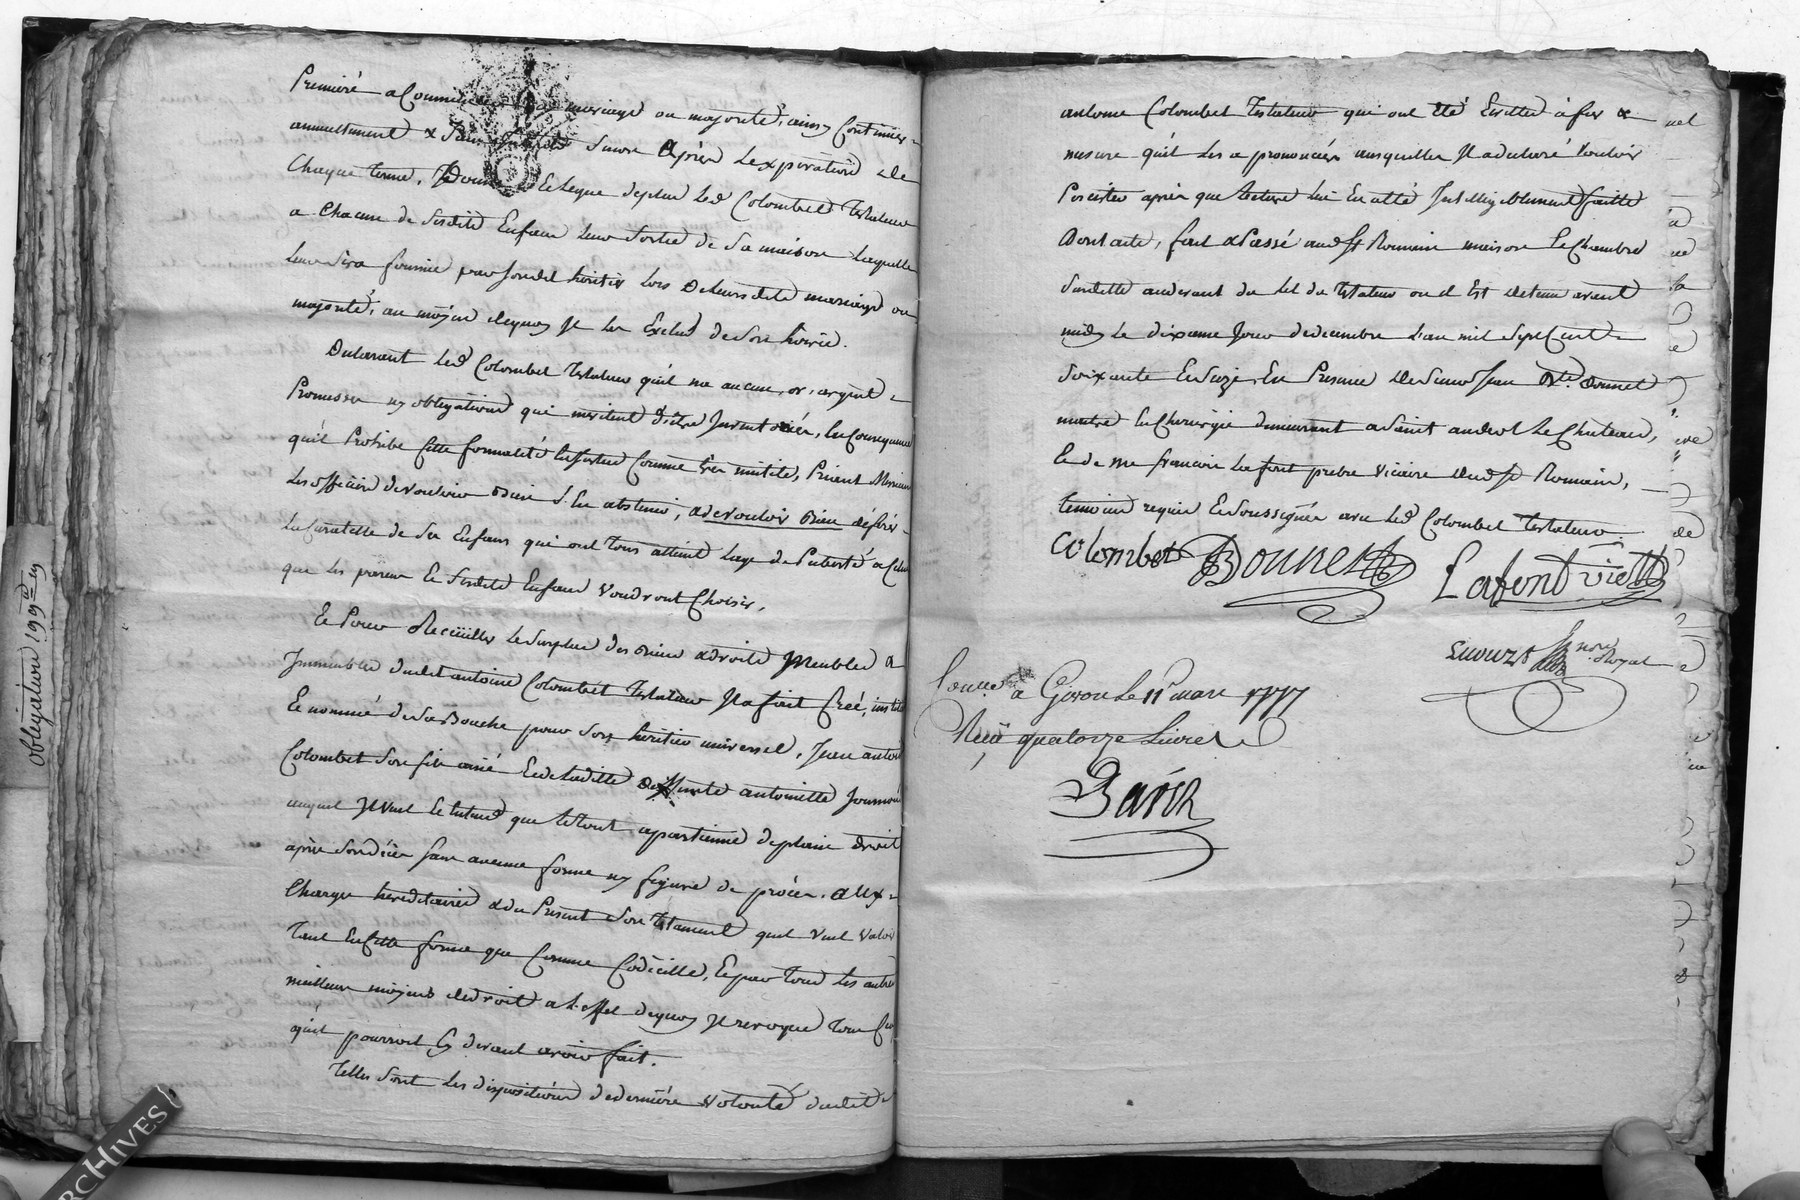 Premiere a Commencer mariage ou majorité, ainsy Continüer
annuellement & suivre Après Lexpiration de
Chaque terme, Donne Et Legue deplus Led Colombet testateur
a Chacun de Sesdits Enfans leur Sortie de Sa maison Laquelle
leur Sera fournie par Sondit heritier Lors De leursdits mariage ou
majorité, au moyen dequoy Il Les Exclud de Son hoirie.
Declarant Led Colombet testateur qu'il n'a aucun, or, argent
Promesses ny obligations qui meritent D'être Inventoriés, En Consequence
qu'il Prohibe Cette formalité Comme inutile, Priant Messieurs
Les officiers de vouloir Bien S'En abstenir, a de vouloir Bien déférer
La Curatelle de Ses Enfans qui ont Tous atteint Lage de Puberté a Celui
que Les parens Et Sesdits Enfans Voudront Choisir.
Et Pour Recüeillir Le Surplus des Biens droits Meubles &
Immeubles dudit antoine Colombet testateur Il a fait Créé, institué
Et nommé de Sa Bouche pour Son heritier universel, Jean antoine
Colombet Son fils ainé Et de Laditte Deffunte antoinette
auquel Il Veut Et Entend que Letout apartienne de plein Droit
après Son décès Sans aucune forme ny figure de procès. Aux
Charges hereditaires & du Présent Son Testament quil Veut Valoir
Tant En Cette forme que Comme Codicille, Et par Tous Les autres
meilleurs moyens de droit a L'effet dequoy Il revoque Tous Ceux
qu'il pourroit Cy devant avoir fait.
Telles Sont Les dispositions de derniére Volonté dudit
antoine Colombet Testateur qui ont Eté Ecrittes à fur &
mesure qu'il Les a prononcées ausquelles Il a declaré Vouloir
Persister après que Lecture Lui En a été Intelligiblement faitte
Dont acte, fait & Passé aud St Romain maison Et Chambre
Susditte audevant du Lit du Testateur ou il Est detenu avant
midy Le dixieme Jour de decembre L'an mil Sept Cent
Soixante En Presence De Sieur Jean Bte. Bonnet
maitre En Chirurgie demeurant a Saint andiol Le Chateau,
Et de Me francois Lafont pretre Vicaire dud St Romain,
temoins requis Et Soussignés avec Led Colombet Testateur.
Colombet Bonnet Lafont Vic
nore Royal
Controllé a Givors Le 11e mars 1777
Reçu quatorze Livres
Obligations
ARCHIVES